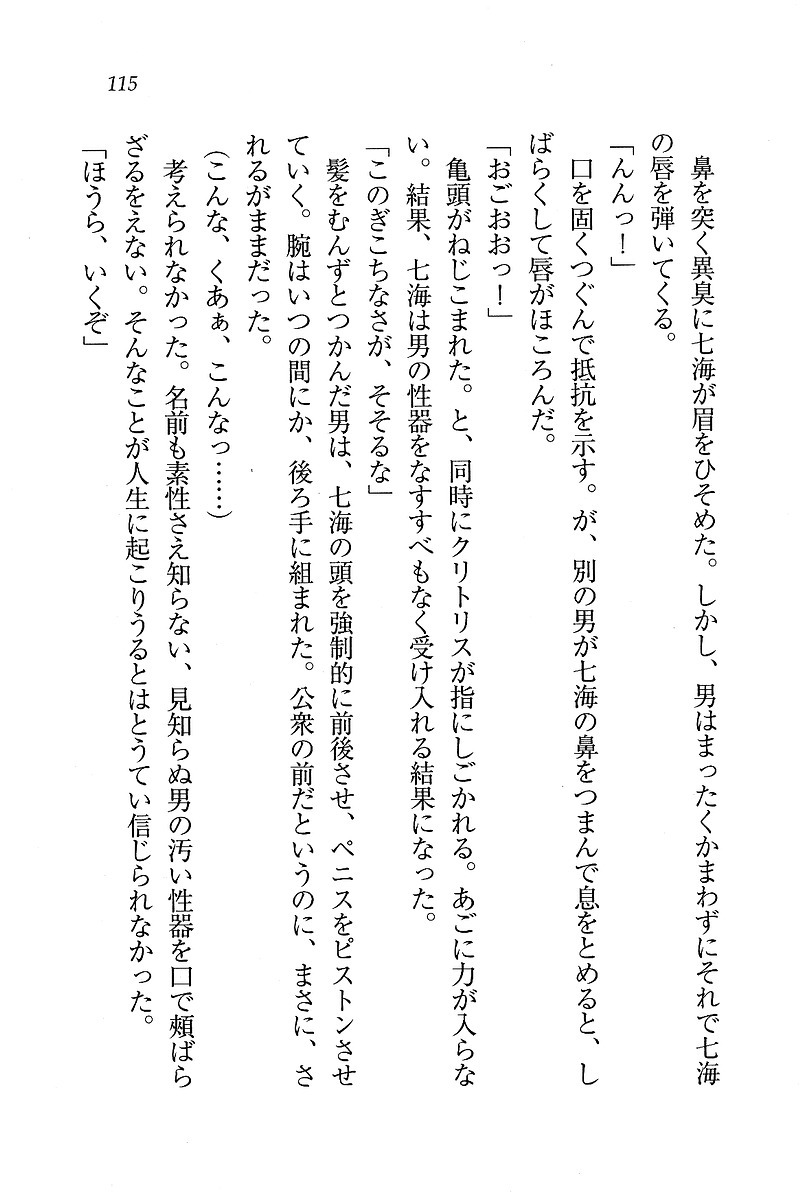 115
鼻を突く異臭に七海が眉をひそめた。しかし、男はまったくかまわずにそれで七海
の唇を弾いてくる。
「んんっ！」
口を固くつぐんで抵抗を示す。が、別の男が七海の鼻をつまんで息をとめると、し
ばらくして唇がほころんだ。
「おごおおっ！」
亀頭がねじこまれた。と、同時にクリトリスが指にしごかれる。あごに力が入らな
い。結果、七海は男の性器をなすすべもなく受け入れる結果になった。
「このぎこちなさが、そそるな」
髪をむんずとつかんだ男は、七海の頭を強制的に前後させ、ペニスをピストンさせ
ていく。腕はいつの間にか、後ろ手に組まれた。公衆の前だというのに、まさに、さ
れるがままだった。
（こんな、くあぁ、こんなっ……）
考えられなかった。名前も素性さえ知らない、見知らぬ男の汚い性器を口で頬ばら
ざるをえない。そんなことが人生に起こりうるとはとうてい信じられなかった。
「ほうら、いくぞ」